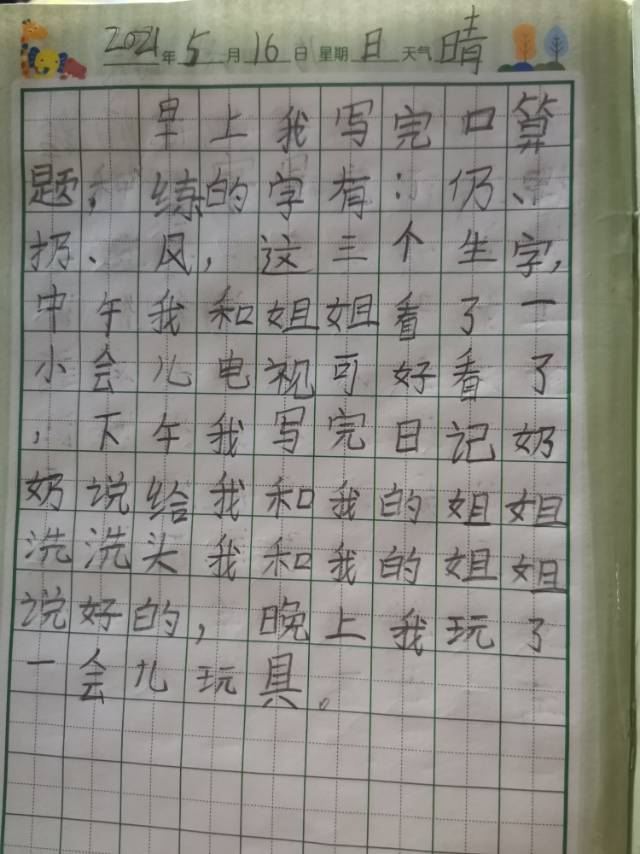 2021年5月16日 星期日 天气晴
早上我写完口算
题，练的字有：仍、
扔、风，这三个生字，
中午我和姐姐看了一
小会儿电视可好看了
，下午我写完日记奶
奶说给我和我的姐姐
洗洗头我和我的姐姐
说好的，晚上我玩了
一会儿玩具。